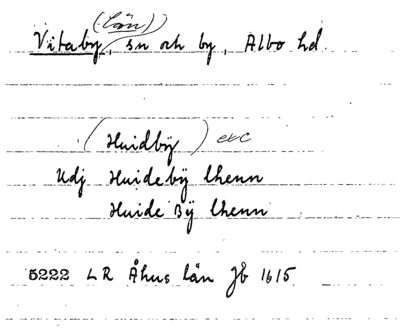 (län)
Vitaby, sn och by, Albo hd.
(Huidbÿ) exc
Udj Huidebÿ lhenn
Huide Bÿ lhenn
5222 LR Åhus län Jb 1615